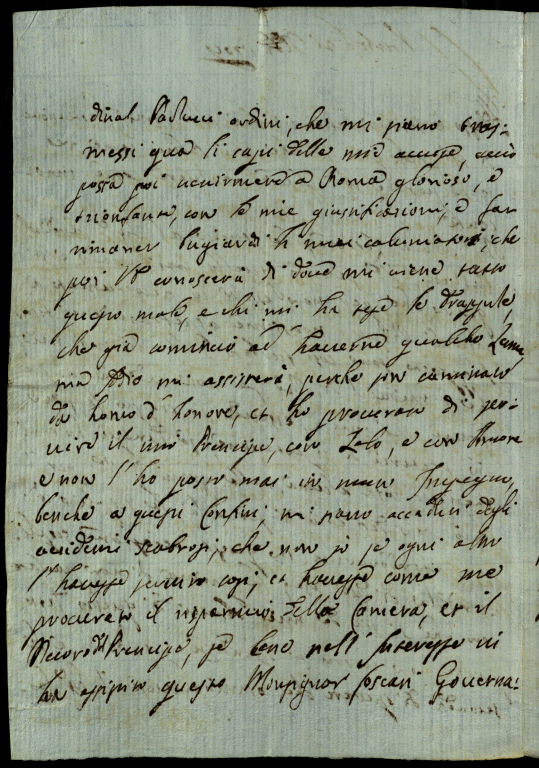 dinal Paolucci ordini, che mi siano tras:
messi quà li capi delle mie accuse, acciò
possa poi venirmene a Roma glorioso, e
trionfante, con le mie giustificazioni, e far
rimaner bugiardi li miei calunniatori, che
poi VS conoscerà di dove mi viene tutto
questo male, e chi mi ha teso le trappole,
che già comincio ad haverne qualche lume
mà Iddio mi assisterà, perche hò caminato
da homo d'honore, et ho procurato di ser:
vire il mio Principe, con zelo, e con Amore
e non l'ho posto mai in niun Impegno,
benche a questi Confini, mi siano accaduti degli
accidenti scabrosi, che non sò se ogni altro
l'havesse servito così, et havesse come me
procurato il risparmio della Camera, et il
Decoro del Principe, se bene nell'Interesse vi
ha assistito questo Monsignor Foscari Governa: